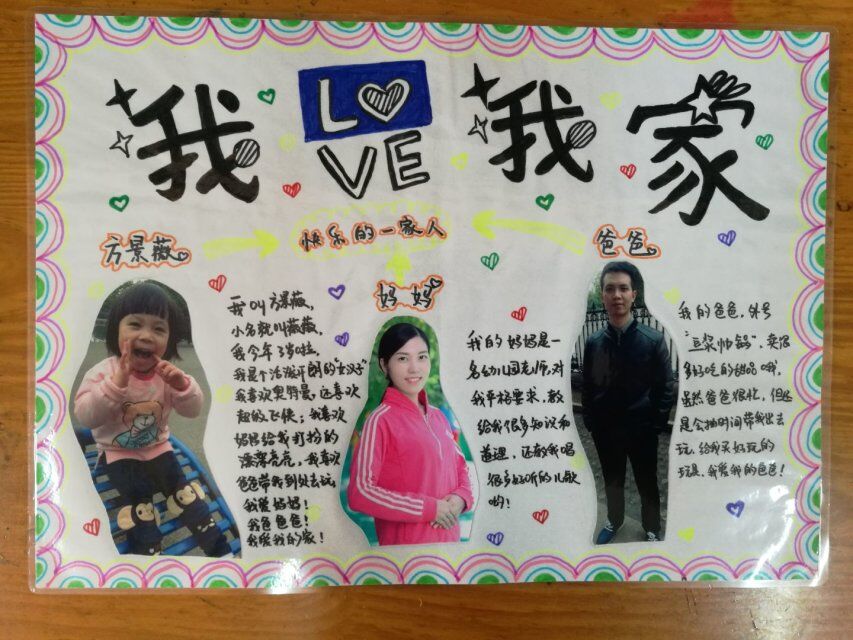 我 LOVE 我 家
方景薇
快乐的一家人
爸爸
妈妈
我叫方景薇,
小名就叫薇薇,
我今年3岁啦,
我是个活泼开朗的"女汉子"
我喜欢奥特曼,还喜欢
超级飞侠;我喜欢
妈妈给我打扮的
漂漂亮亮,我喜欢
爸爸带我到处去玩,
我爱妈妈!
我爸爸爸!
我爱我的家!
我的妈妈是一
名幼儿园老师,对
我严格要求,教
给我很多知识和
道理,还教我唱
很多好听的儿歌
哟!
我的爸爸,外号
"豆浆帅锅",卖很
多好吃的甜品哦,
虽然爸爸很忙,但还
是会抽时间带我出去
玩,给我买好玩的
玩具,我爱我的爸爸!